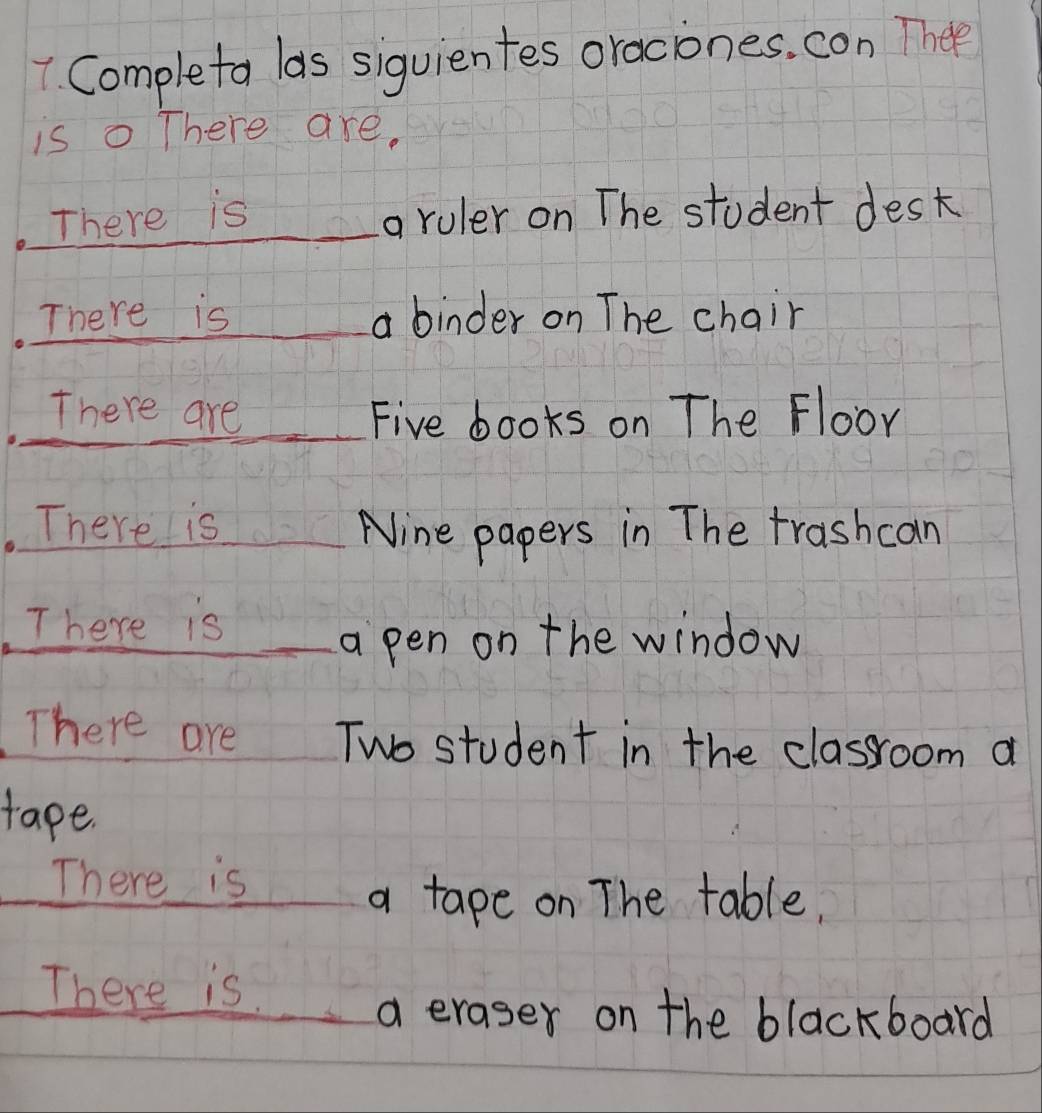 7. Completa las siguientes oraciones. con Thee
is o There are.
. There is a ruler on The student desk
. There is a binder on The chair
. There are Five books on The Floor
. There is Nine papers in The trashcan
. There is a pen on the window
. There are Two student in the classroom a
tape.
There is a tape on The table.
There is. a eraser on the blackboard